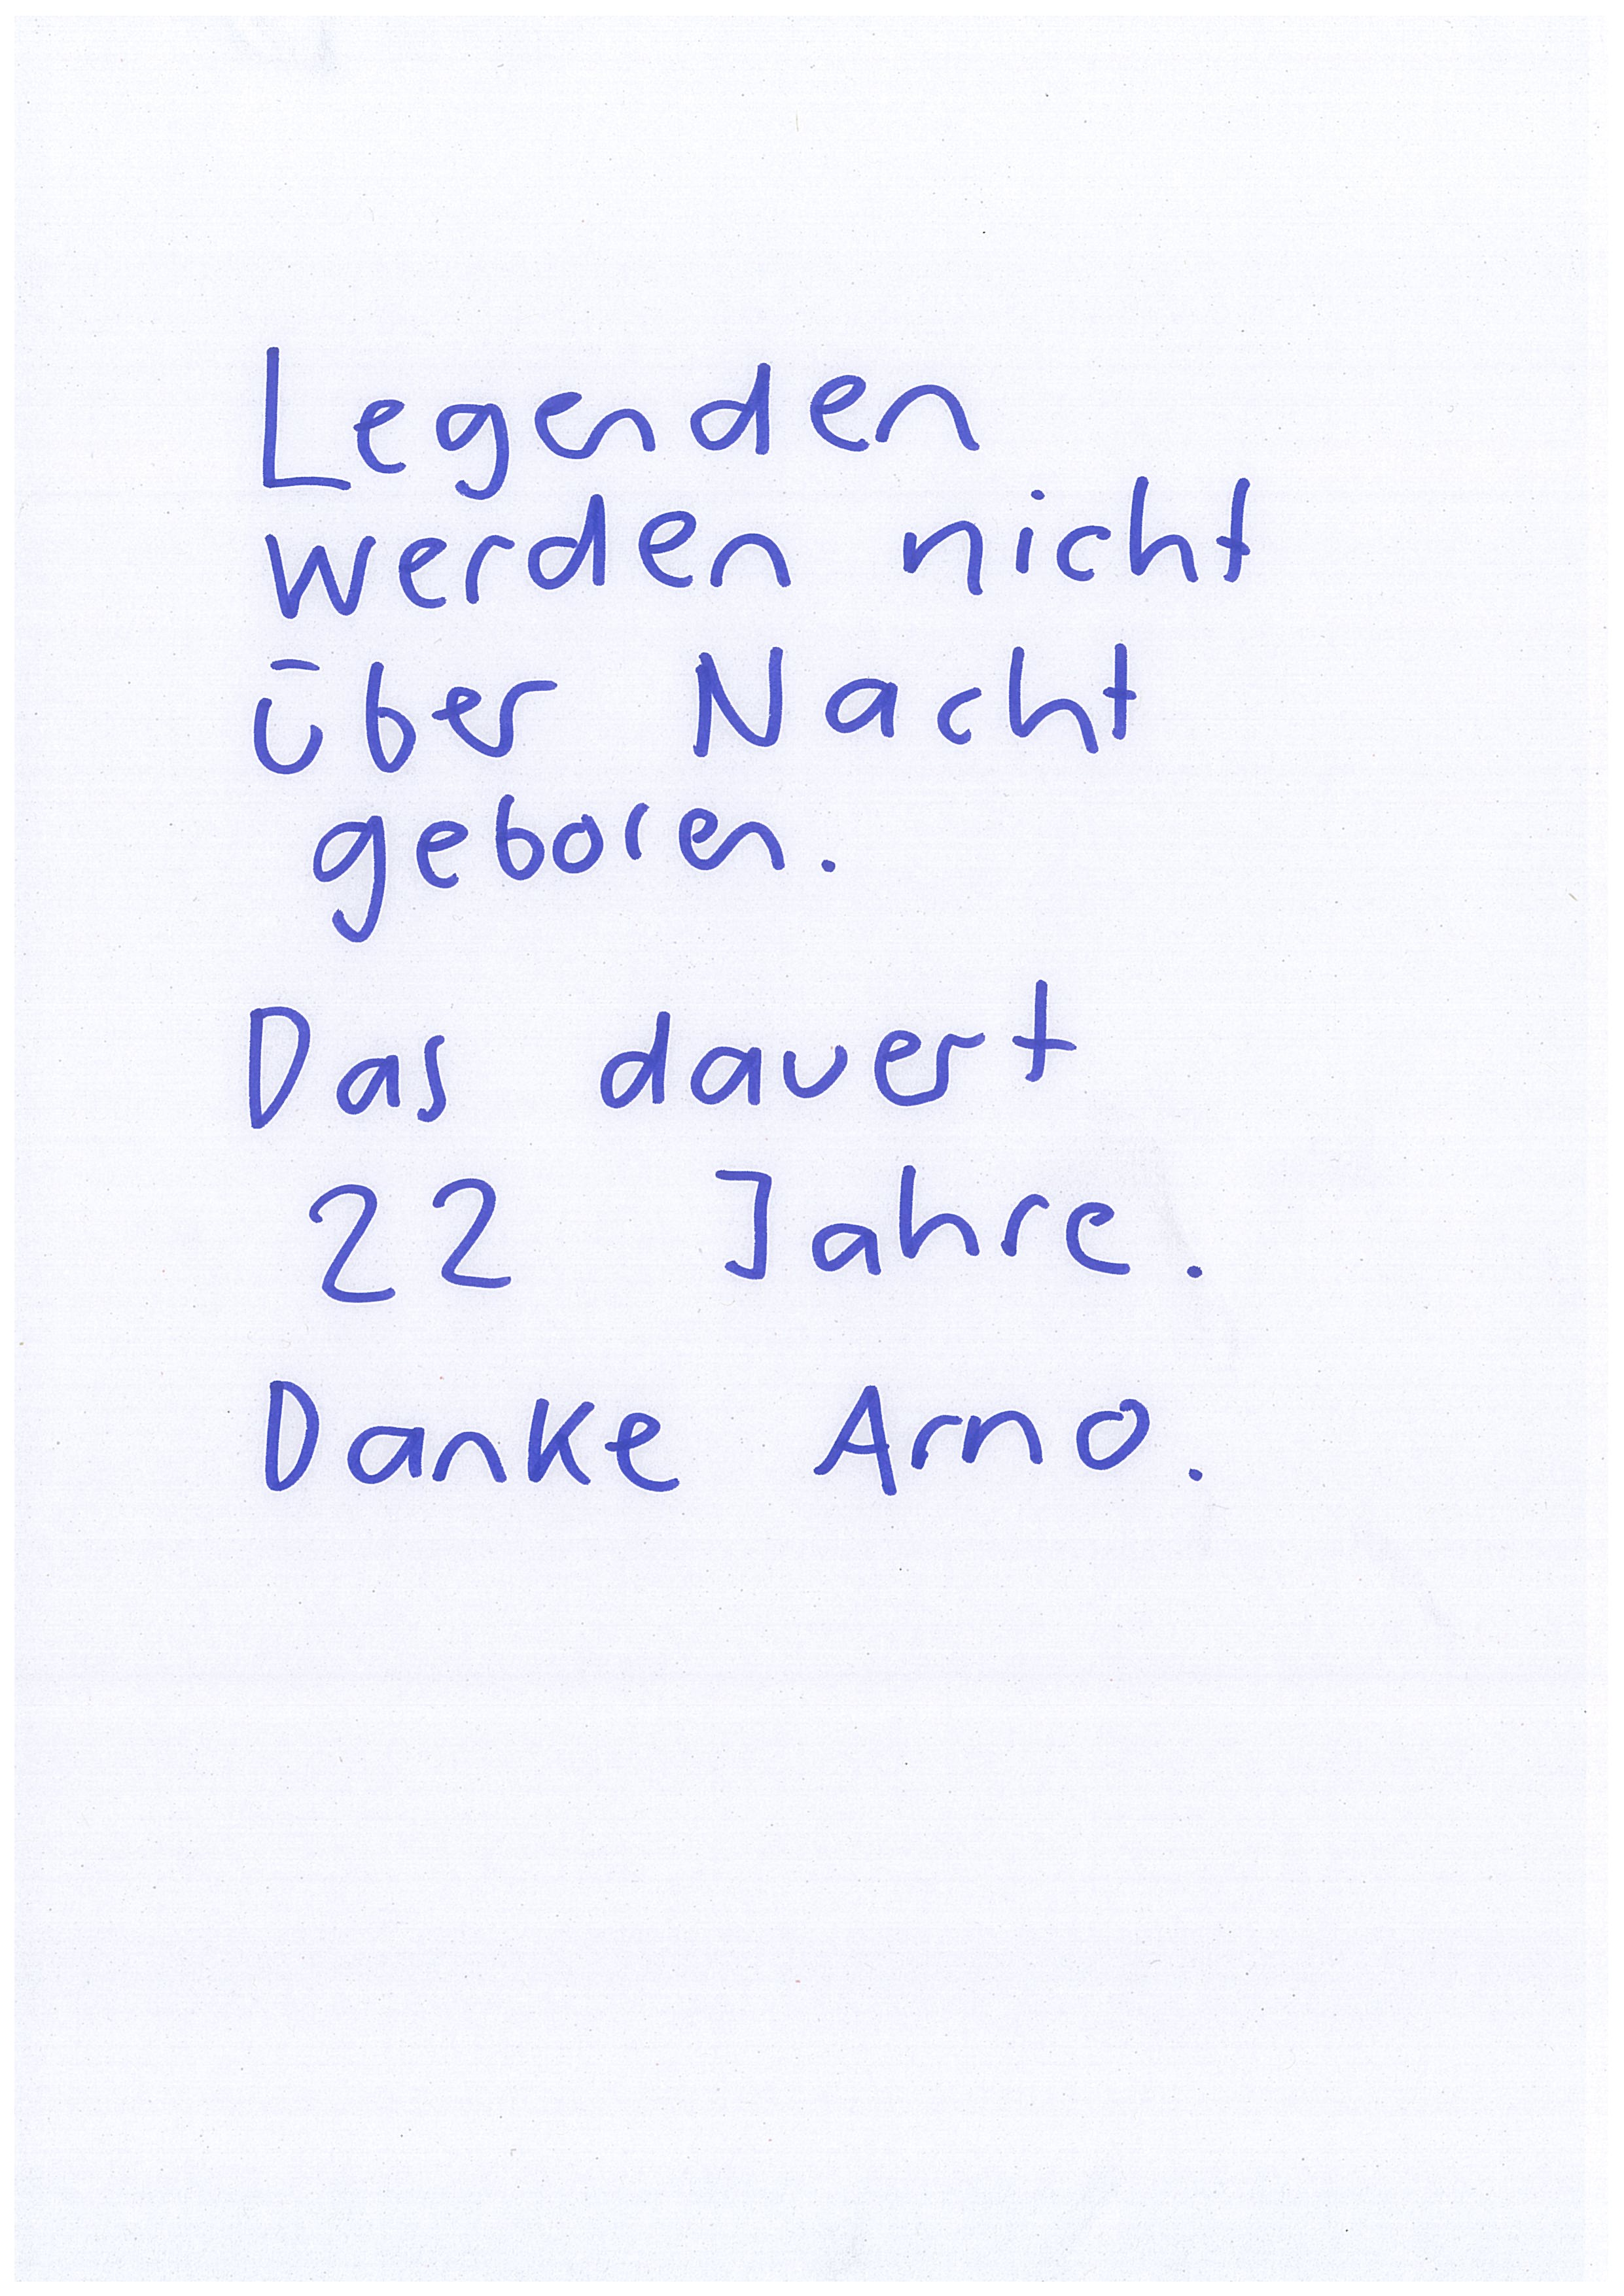 Legenden
werden nicht
über Nacht
geboren.
Das dauert
22 Jahre.
Danke Arno.